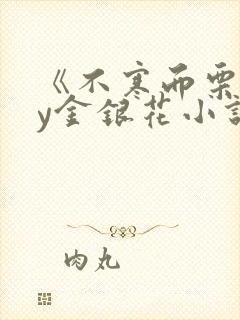 《不寒而栗
y金银花小说
肉丸